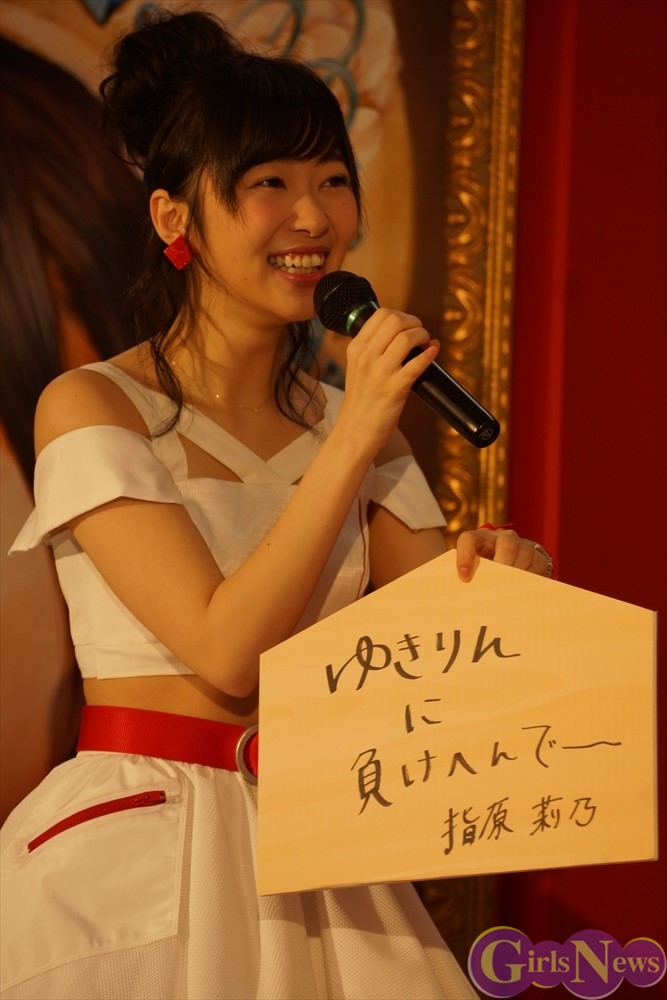 ゆきりん
に
負けへんでー
指原 莉乃
GirlsNews